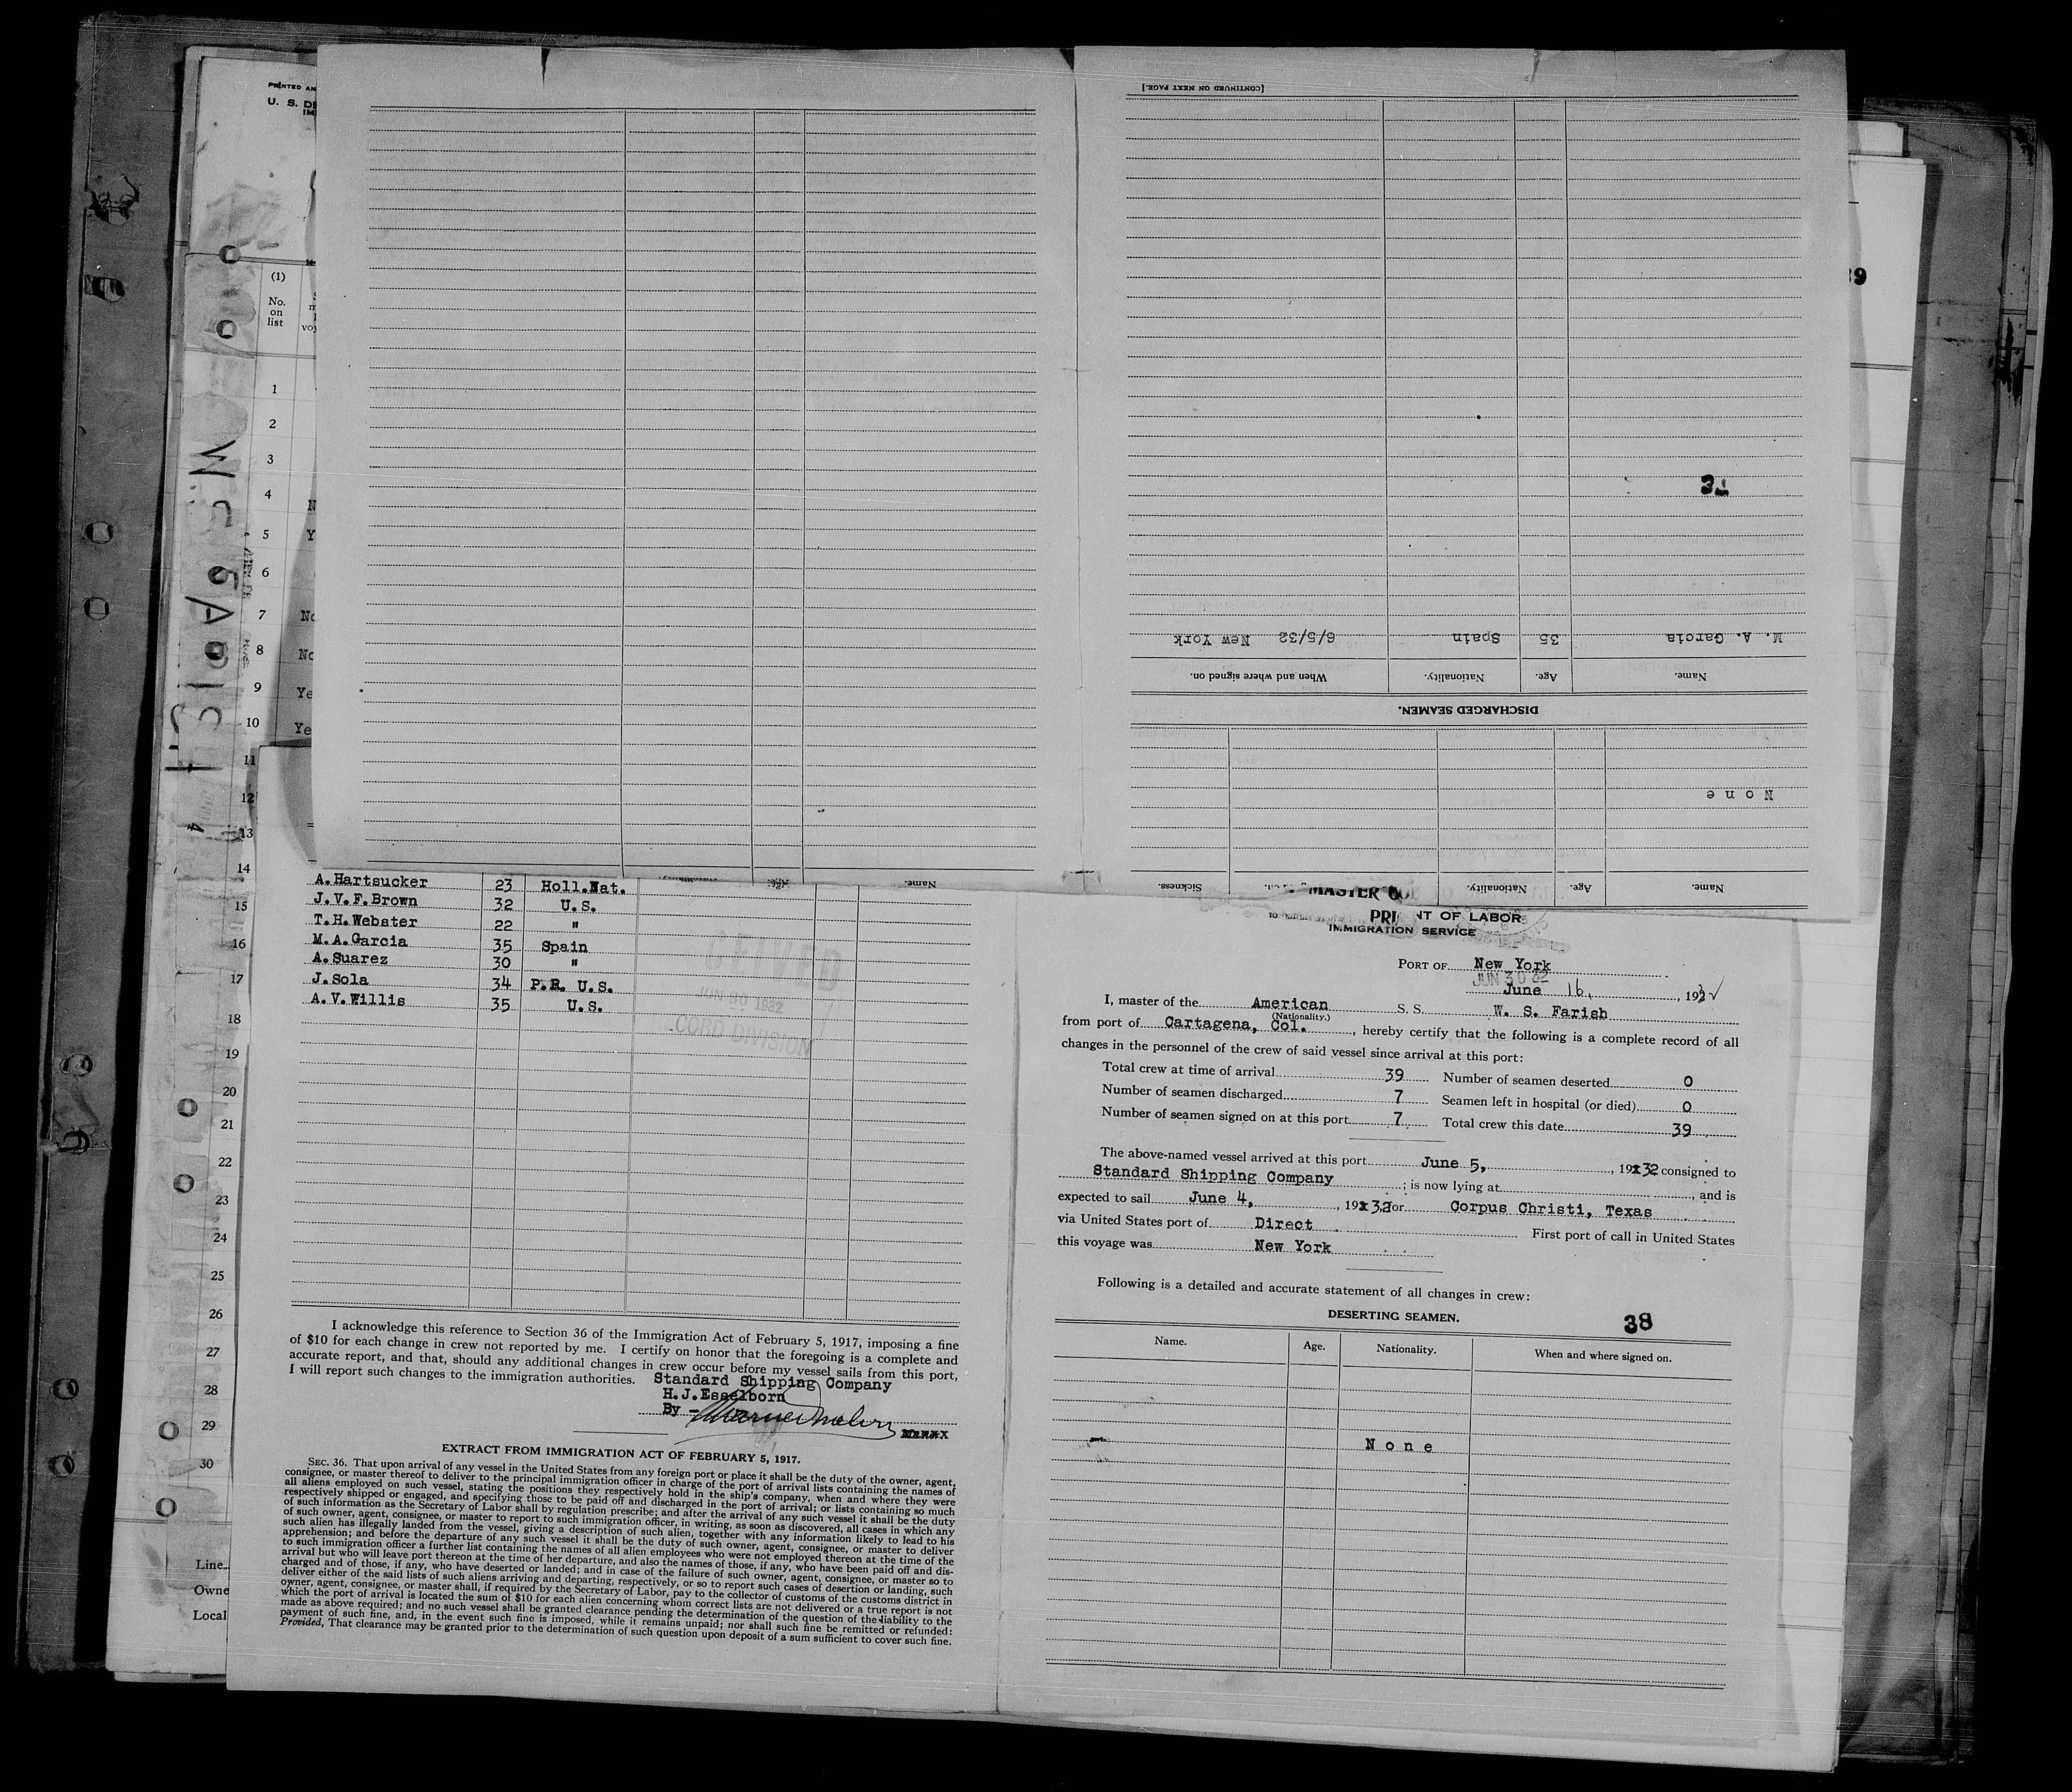 PRINTED AN
U. S. DE
IM
(1)
No.
on
list
voy
1
2
3
4
N
5
Y
6
7
No
8
No
9
Ye
10
Ye
11
12
13
14
15
16
17
18
19
20
21
22
23
24
25
26
27
28
29
30
Line
Owne
Local
39
[CONTINUED ON NEXT PAGE.]
M. A. Garcia 35 Spain 6/5/32 New York
Name. Age. Nationality. When and where signed on.
DISCHARGED SEAMEN.
None
Name. Age. Nationality. Sickness.
Name. Age.
A.Hartsucker 23 Holl.Nat.
J.V.F.Brown 32 U.S.
T.H.Webster 22 "
M.A.Garcia 35 Spain
A.Suarez 30 "
J.Sola 34 P.R. U.S.
A.V.Willis 35 U.S.
CEIVED
JUN 30 1932
CORD DIVISION
I acknowledge this reference to Section 36 of the Immigration Act of February 5, 1917, imposing a fine
of $10 for each change in crew not reported by me. I certify on honor that the foregoing is a complete and
accurate report, and that, should any additional changes in crew occur before my vessel sails from this port,
I will report such changes to the immigration authorities. Standard Shipping Company
H.J.Esselborn
By -
EXTRACT FROM IMMIGRATION ACT OF FEBRUARY 5, 1917.
SEC. 36. That upon arrival of any vessel in the United States from any foreign port or place it shall be the duty of the owner, agent,
consignee, or master thereof to deliver to the principal immigration officer in charge of the port of arrival lists containing the names of
all aliens employed on such vessel, stating the positions they respectively hold in the ship's company, when and where they were
respectively shipped or engaged, and specifying those to be paid off and discharged in the port of arrival; or lists containing so much
of such information as the Secretary of Labor shall by regulation prescribe; and after the arrival of any such vessel it shall be the duty
of such owner, agent, consignee, or master to report to such immigration officer, in writing, as soon as discovered, all cases in which any
such alien has illegally landed from the vessel, giving a description of such alien, together with any information likely to lead to his
apprehension; and before the departure of any such vessel it shall be the duty of such owner, agent, consignee, or master to deliver
to such immigration officer a further list containing the names of all alien employees who were not employed thereon at the time of the
arrival but who will leave port thereon at the time of her departure, and also the names of those, if any, who have been paid off and dis-
charged and of those, if any, who have deserted or landed; and in case of the failure of such owner, agent, consignee, or master so to
deliver either of the said lists of such aliens arriving and departing, respectively, or so to report such cases of desertion or landing, such
owner, agent, consignee, or master shall, if required by the Secretary of Labor, pay to the collector of customs of the customs district in
which the port of arrival is located the sum of $10 for each alien concerning whom correct lists are not delivered or a true report is not
made as above required; and no such vessel shall be granted clearance pending the determination of the question of the liability to the
payment of such fine, and, in the event such fine is imposed, while it remains unpaid; nor shall such fine be remitted or refunded:
Provided, That clearance may be granted prior to the determination of such question upon deposit of a sum sufficient to cover such fine.
MASTER
NT OF LABOR
IMMIGRATION SERVICE
PORT OF New York
JUN 30 32
June 16, 1932
I, master of the American S. S. W. S. Farish
(Nationality.)
from port of Cartagena, Col., hereby certify that the following is a complete record of all
changes in the personnel of the crew of said vessel since arrival at this port:
Total crew at time of arrival 39 Number of seamen deserted 0
Number of seamen discharged 7 Seamen left in hospital (or died) 0
Number of seamen signed on at this port 7 Total crew this date 39
The above-named vessel arrived at this port June 5, 1932 consigned to
Standard Shipping Company ; is now lying at , and is
expected to sail June 4, 1932 for Corpus Christi, Texas
via United States port of Direct First port of call in United States
this voyage was New York
Following is a detailed and accurate statement of all changes in crew:
DESERTING SEAMEN. 38
Name. Age. Nationality. When and where signed on.
None